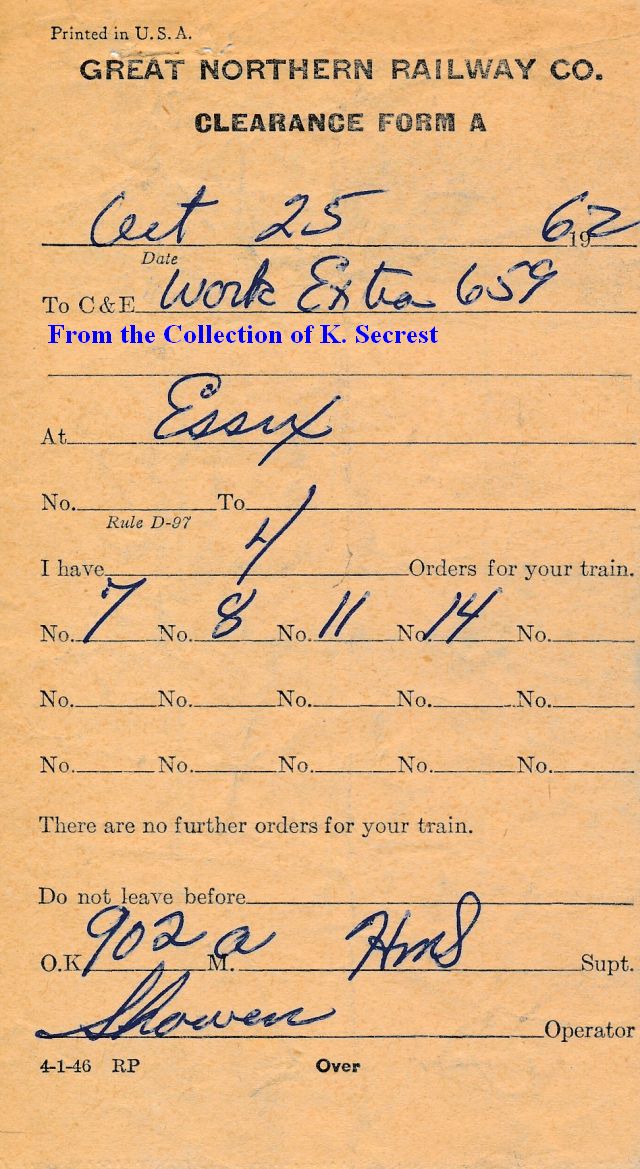 Printed in U.S.A.
GREAT NORTHERN RAILWAY CO.
CLEARANCE FORM A
Oct 25 1962
Date
To C & E Work Extra 659
From the Collection of K. Secrest
At Essex
No. To
Rule D-97
I have 4 Orders for your train.
No. 7 No. 8 No. 11 No. 14 No.
No. No. No. No. No.
No. No. No. No. No.
There are no further orders for your train.
Do not leave before
O.K. 902 a M. HMS Supt.
Showen Operator
4-1-46 RP Over